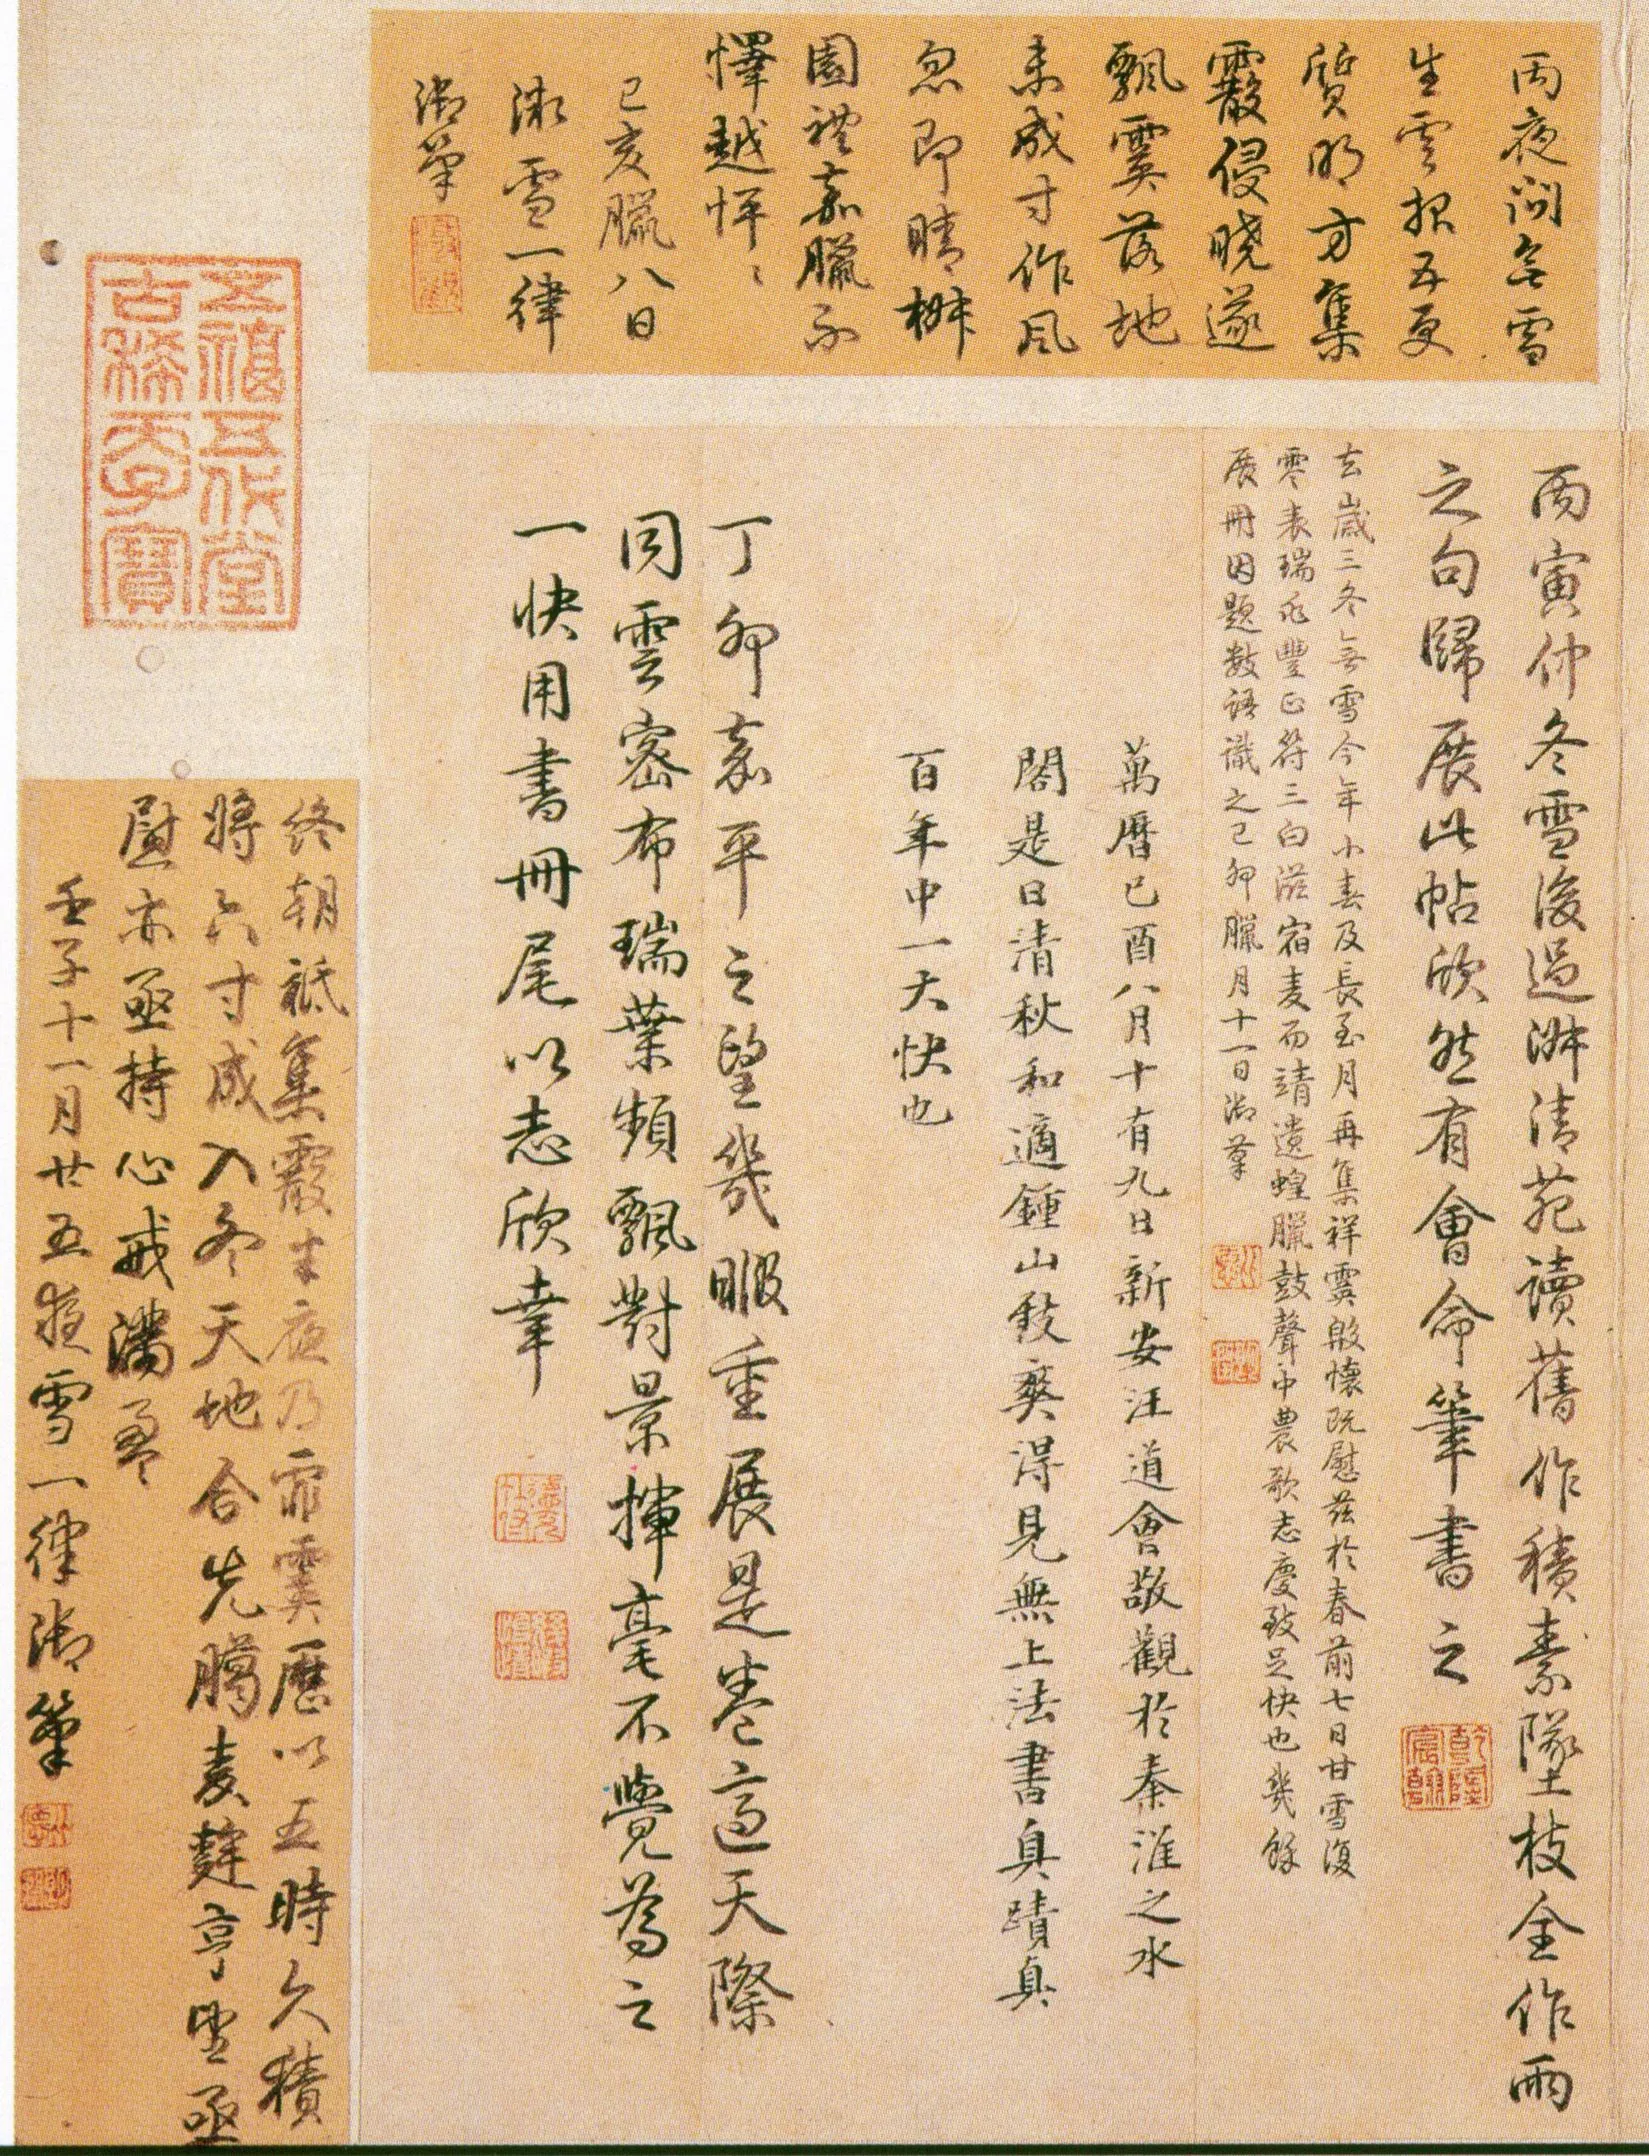 丙夜問無雪
生雲報五更
質明方集
霰侵曉遂
飄霙落地
未成寸作風
忽即晴樹
園禮嘉臘不
懌越怦〻
己亥臘八日
微雪一律
御筆
丙寅仲冬雪後過淋清苑讀舊作積素墜枝全作雨
之句歸展此帖欣然有會命筆書之
乾隆宸翰
去歲三冬無雪今年小春及長至月再集祥霙殷懷既慰茲於春前七日甘雪復
零表瑞兆豐正符三白滋宿麥而靖遺蝗臘鼓聲中農歌志慶致足快也幾餘
展冊因題數語識之己卯臘月十一日御筆
萬曆己酉八月十有九日新安汪道會敬觀於秦淮之水
閣是日清秋和適鍾山致爽得見無上法書真蹟真
百年中一大快也
丁卯嘉平之望幾暇重展是卷適天際
同雲密布瑞葉頻飄對景揮毫不覺為之
一快用書冊尾以志欣幸
五福五代堂
古稀天子寶
終朝祗集霰半夜乃霏霙歷以五時久積
將六寸成入冬天地合先臘麥麰亨望亟
慰亦亟持心戒滿盈
壬子十一月廿五夜雪一律御筆